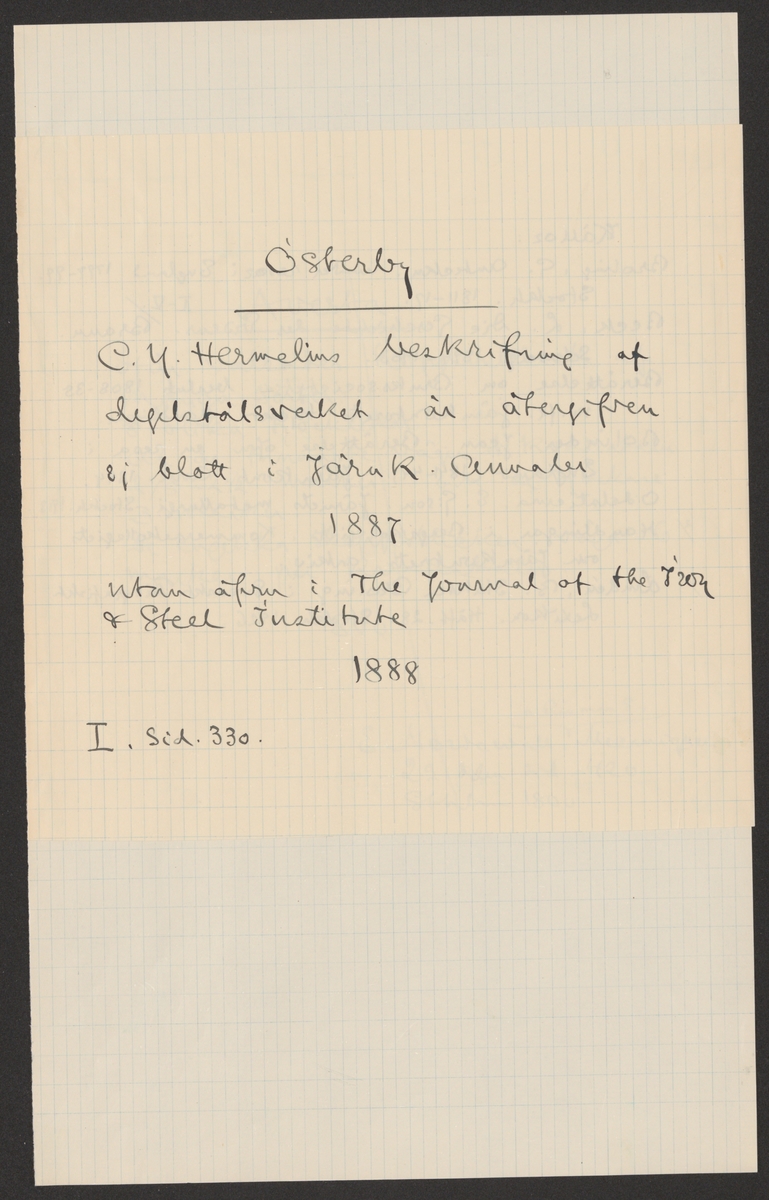 Österby
C. Y. Hermelins beskrifning af
degelstålsverket är återgifven
ej blott i Järnk. Annaler
1887
utan äfven i The Journal of the Iron
& Steel Institute
1888
I. Sid. 330.